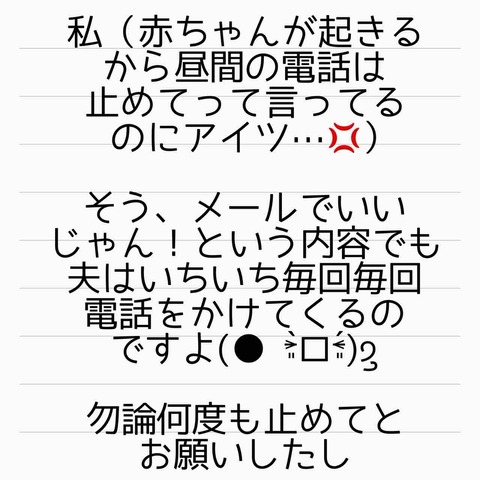 私（赤ちゃんが起きる
から昼間の電話は
止めてって言ってる
のにアイツ…💢）
そう、メールでいい
じゃん！という内容でも
夫はいちいち毎回毎回
電話をかけてくるの
ですよ(● ˃̀ロ˂́)ȝ
勿論何度も止めてと
お願いしたし